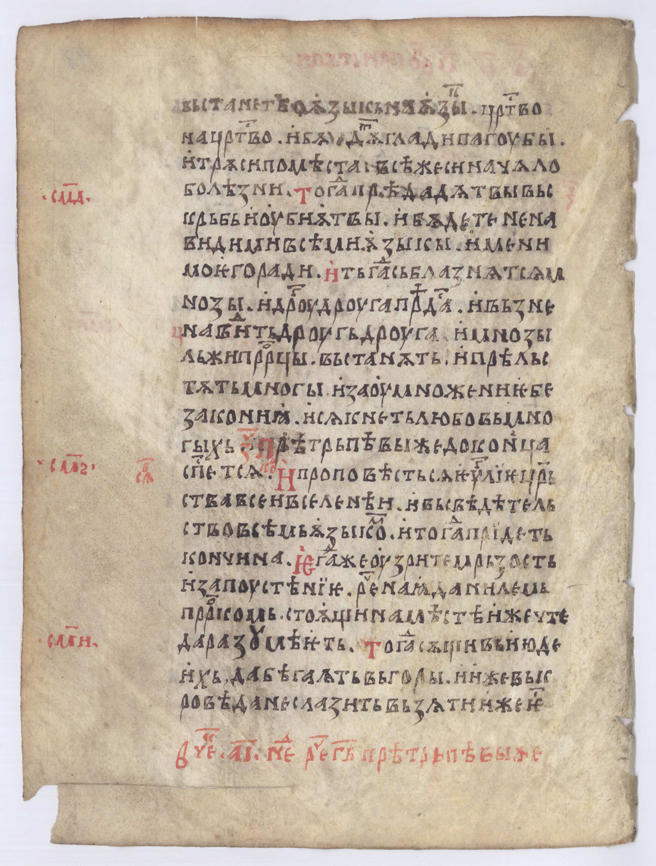 въстанетъ бо ѫзыкъ на ѫзы҃ . црⷭтво
на црⷭтво . и бѫдѫтⷮ глади пагоубы .
и трѫси по мѣста . въсѣ же си начѧло
болѣзни . тогⷣа прѣдадѧт вы въ с
кръбь и оубиѧт вы . и бѫдете нена
видими всѣми ѫзыкы . имени
моѥго ради . и тъгⷣа съблазнѧтсѧ м
нози . и дрⷹгъ дроуга прⷣдⷭа . и възне
навⷣить дроугъ дроуга и мнози
лъжи прⷪрци . въстанѫть . и прѣльс
тѧть многы . и за оумножение бе
закониꙗ . исѧкнеть любовь мно
гыхъ . прѣтръпѣвы же до конца
спⷭетсѧ . и проповѣстьсѧ еⷢуⷢлие црⷭ
ства в всеи вселенѣи . въ свѣдѣтель
ство всѣмь ѫзыкоⷨ . и тогⷣа прїдеть
кончина . ѥгⷣа же оузрите мръзость
и запоустѣнїѥ . реⷱнаѫ данилемь
прⷪркомь . стоѫщи на мѣстѣ иже чте
да разоумѣѥть . тогⷣа сѫщи въ июде
ихъ , да бѣгаѫть въ горы . и иже въ кс
ровѣ да не слазить възѧти иже ѥⷭ
прѣтръпѣвы же